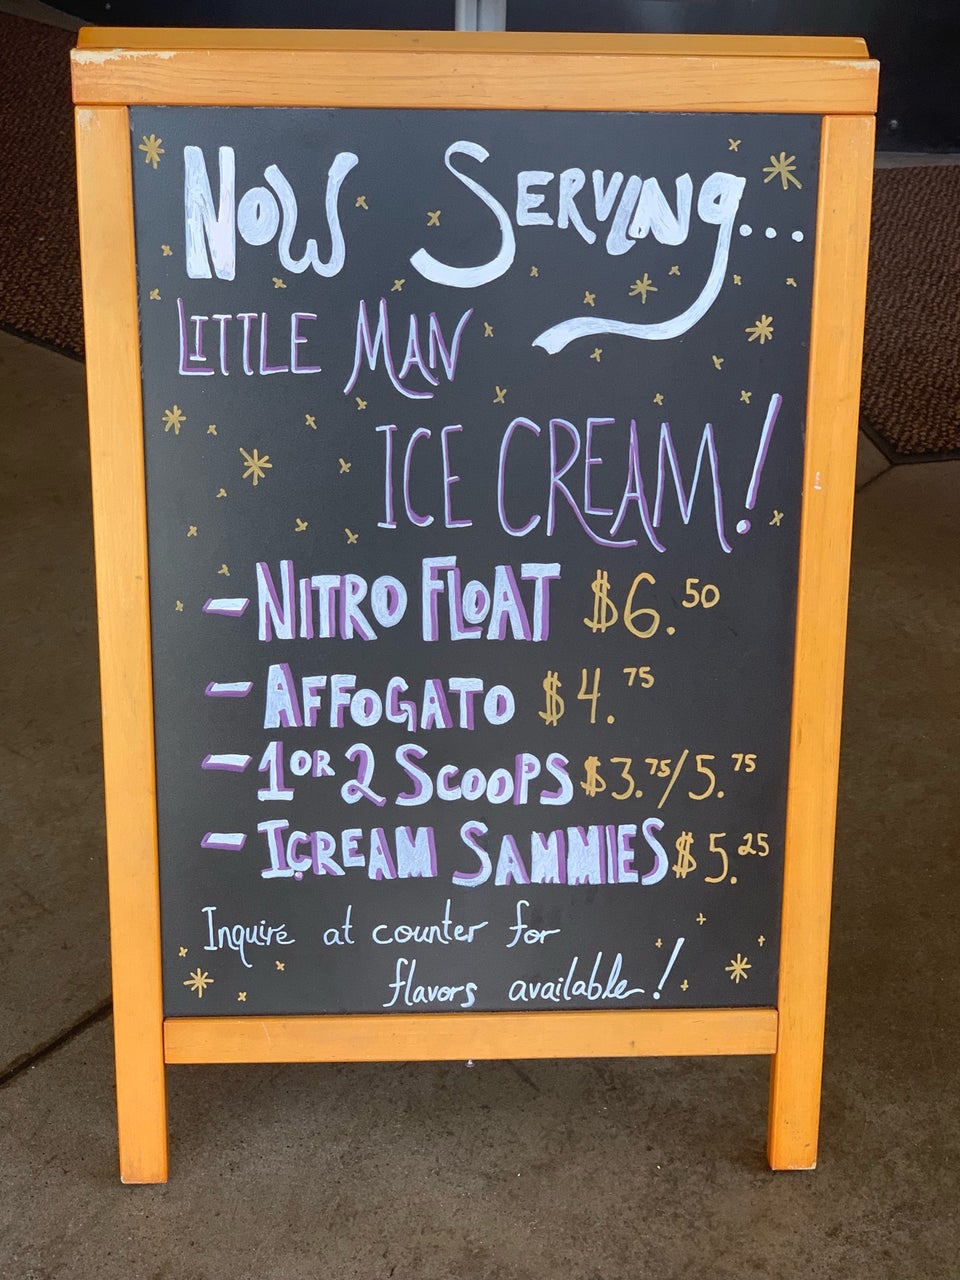 Now Serving...
LITTLE MAN
ICE CREAM!
- NITRO FLOAT $6.50
- AFFOGATO $4.75
- 1 OR 2 SCOOPS $3.75/5.75
- ICREAM SAMMIES $5.25
Inquire at counter for
flavors available!